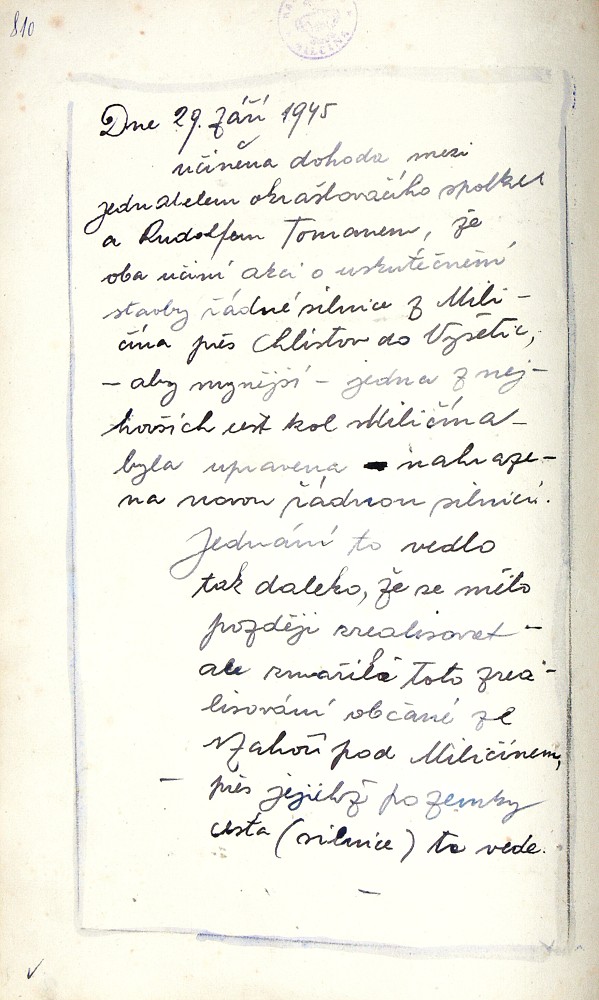 810
MILČÍNA
Dne 29. září 1945
učiněna dohoda mezi
jednatelem okrašlovacího spolku
a Rudolfem Tomanem, že
oba učiní akci o uskutečnění
stavby řádné silnice z Mili-
čína přes Chlistov do Vyšetic,
- aby nynější - jedna z nej-
horších cest kol Miličína -
byla upravena - nahraze-
na novou řádnou silnicí.
Jednání to vedlo
tak daleko, že se mělo
později zrealisovat -
ale zmařili toto zrea-
lisování občané ze
Záhoří pod Miličínem,
- přes jejichž pozemky
cesta (silnice) ta vede.
-